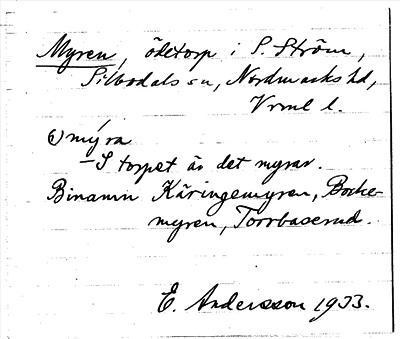 Myren, ödetorp i S. Ström,
Silbodals sn, Nordmarks hd,
Vrml l.
mýra
– S torpet är det myrar.
Binamn Käringemyren, Bocke-
myren, Torrbaserud.
E. Andersson 1933.